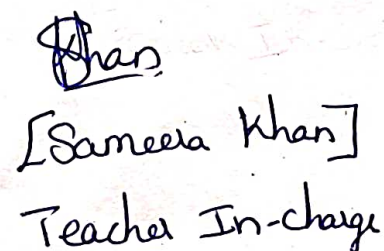 Khan
[Sameera Khan]
Teacher In-charge